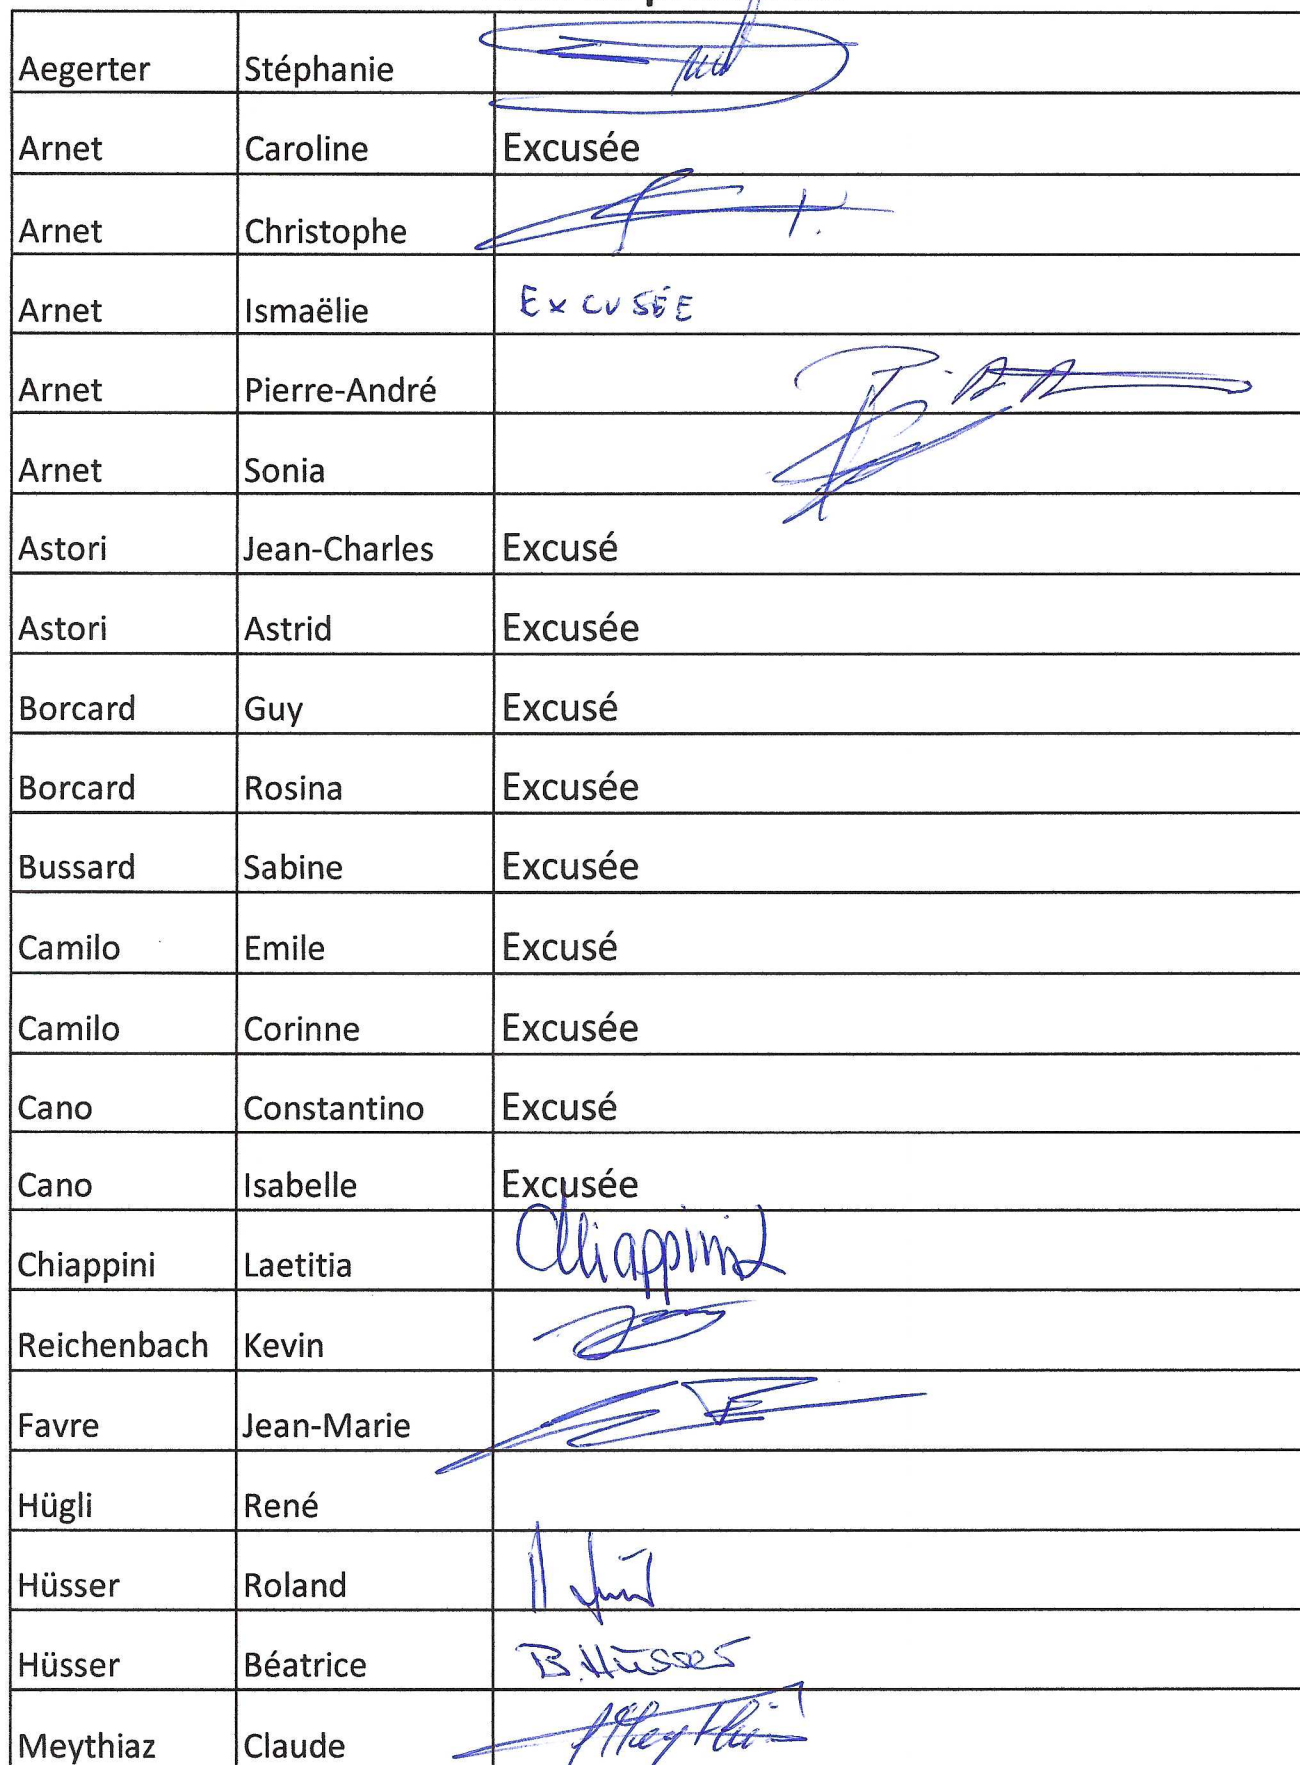 Aegerter Stéphanie
Arnet Caroline Excusée
Arnet Christophe
Arnet Ismaëlie EXCUSÉE
Arnet Pierre-André
Arnet Sonia
Astori Jean-Charles Excusé
Astori Astrid Excusée
Borcard Guy Excusé
Borcard Rosina Excusée
Bussard Sabine Excusée
Camilo Emile Excusé
Camilo Corinne Excusée
Cano Constantino Excusé
Cano Isabelle Excusée
Chiappini Laetitia Chiappini
Reichenbach Kevin
Favre Jean-Marie
Hügli René
Hüsser Roland
Hüsser Béatrice B. Hüsser
Meythiaz Claude